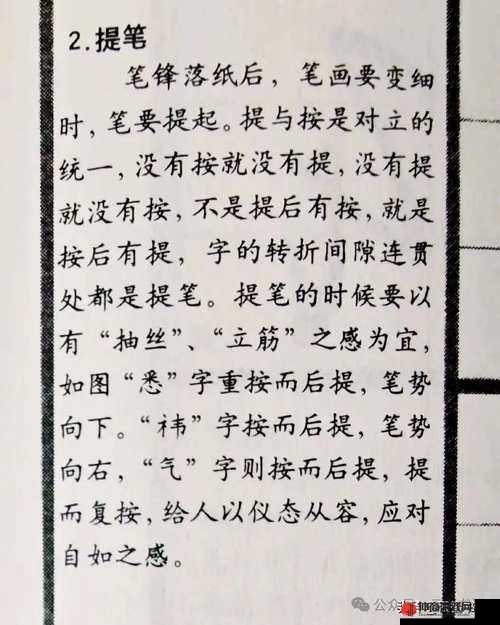 2.提笔
笔锋落纸后，笔画要变细
时，笔要提起。提与按是对立的
统一，没有按就没有提，没有提
就没有按，不是提后有按，就是
按后有提，字的转折间隙连贯
处都是提笔。提笔的时候要以
有“抽丝”、“立筋”之感为宜，
如图“悉”字重按而后提，笔势
向下。“祎”字按而后提，笔势
向右，“气”字则按而后提，提
而复按，给人以仪态从容，应对
自如之感。
公众号